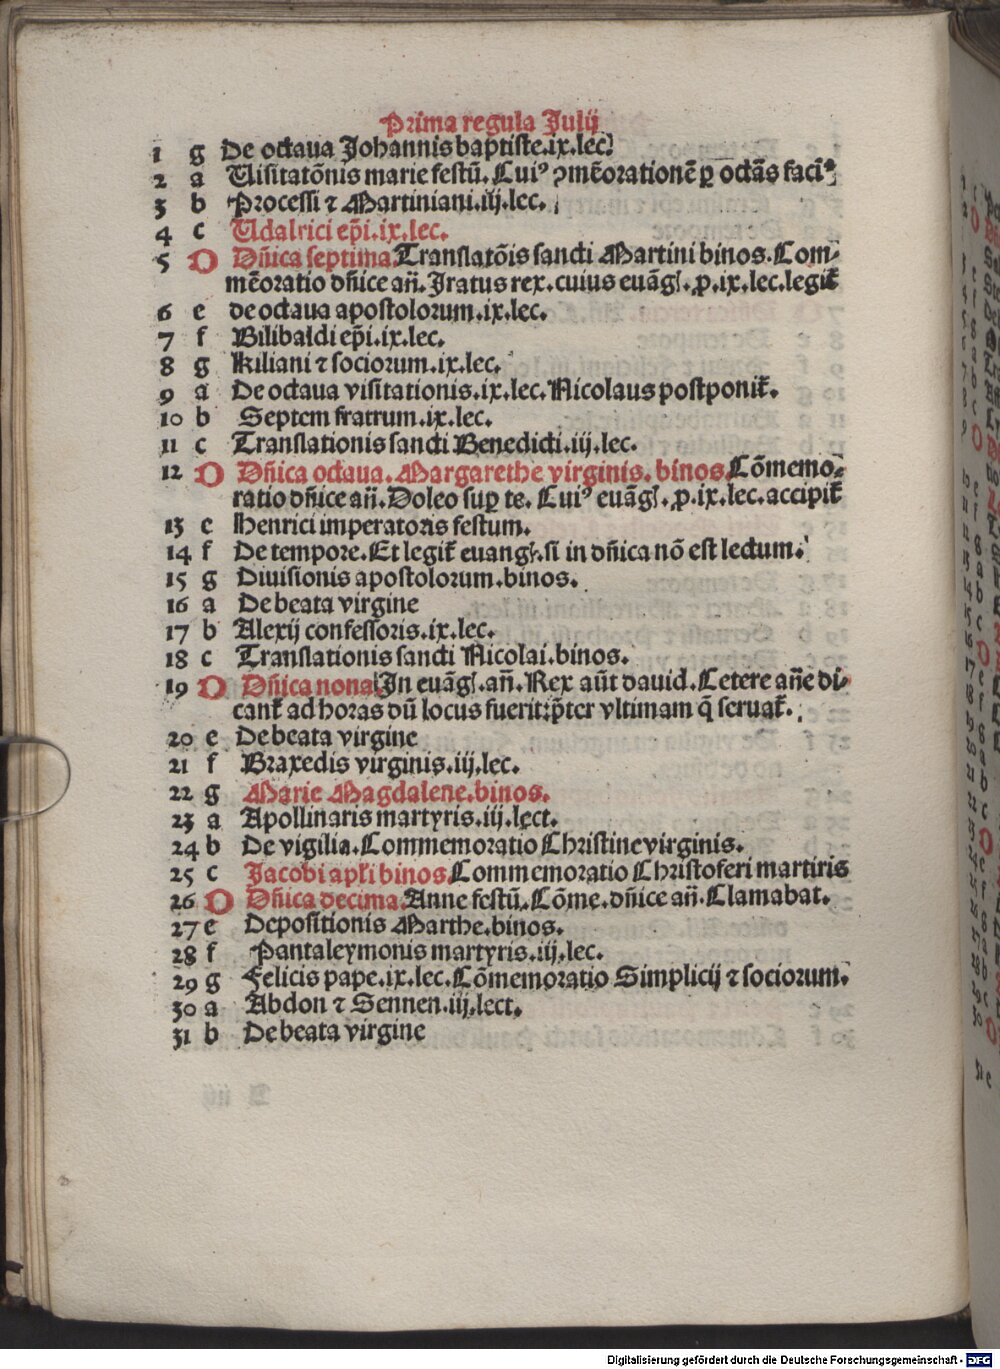 Prima regula Julij
1 g De octaua Johannis baptiste.ix.lec.
2 a Uisitatõnis marie festũ. Cuiꝰ ꝯmẽorationẽ ꝑ octãs faciꝰ
3 b Processi ⁊ Martiniani.iij.lec.
4 c Udalrici ep̃i.ix.lec.
5 D Dñica septima. Translatõis sancti Martini binos. Com-
mẽoratio dñice añ. Iratus rex. cuius euãgl. ꝓ.ix.lec.legit᷑
6 e de octaua apostolorum.ix.lec.
7 f Bilibaldi ep̃i.ix.lec.
8 g Kiliani ⁊ sociorum.ix.lec.
9 a De octaua visitationis.ix.lec. Nicolaus postponit᷑.
10 b Septem fratrum.ix.lec.
11 c Translationis sancti Benedicti.iij.lec.
12 D Dñica octaua. Margarethe virginis. binos. Cõmemo-
ratio dñice añ. Doleo suꝑ te. Cuiꝰ euãgl. ꝓ.ix.lec.accipit᷑
13 e Henrici imperatoris festum.
14 f De tempore. Et legit᷑ euangl. si in dñica nõ est lectum.
15 g Diuisionis apostolorum.binos.
16 a De beata virgine
17 b Alexij confessoris.ix.lec.
18 c Translationis sancti Nicolai.binos.
19 D Dñica nona. In euãgl. añ. Rex aũt dauid. Cetere añe di-
cant᷑ ad horas dũ locus fuerit: p̃ter vltimam q̃ seruat᷑.
20 e De beata virgine
21 f Braxedis virginis.iij.lec.
22 g Marie Magdalene.binos.
23 a Apollinaris martyris.iij.lect.
24 b De vigilia. Commemoratio Christine virginis.
25 c Jacobi apl̃i binos. Commemoratio Christoferi martiris
26 D Dñica decima. Anne festũ. Cõme. dñice añ. Clamabat.
27 e Depositionis Marthe.binos.
28 f Pantaleymonis martyris.iij.lec.
29 g Felicis pape.ix.lec. Cõmemoratio Simplicij ⁊ sociorum.
30 a Abdon ⁊ Sennen.iij.lect.
31 b De beata virgine
Digitalisierung gefördert durch die Deutsche Forschungsgemeinschaft - DFG